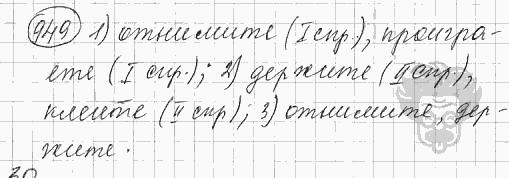 949 1) отнимите (I спр.), проигра-
ете (I спр.); 2) держите (II спр.),
клеите (II спр); 3) отнимите, дер-
жите.